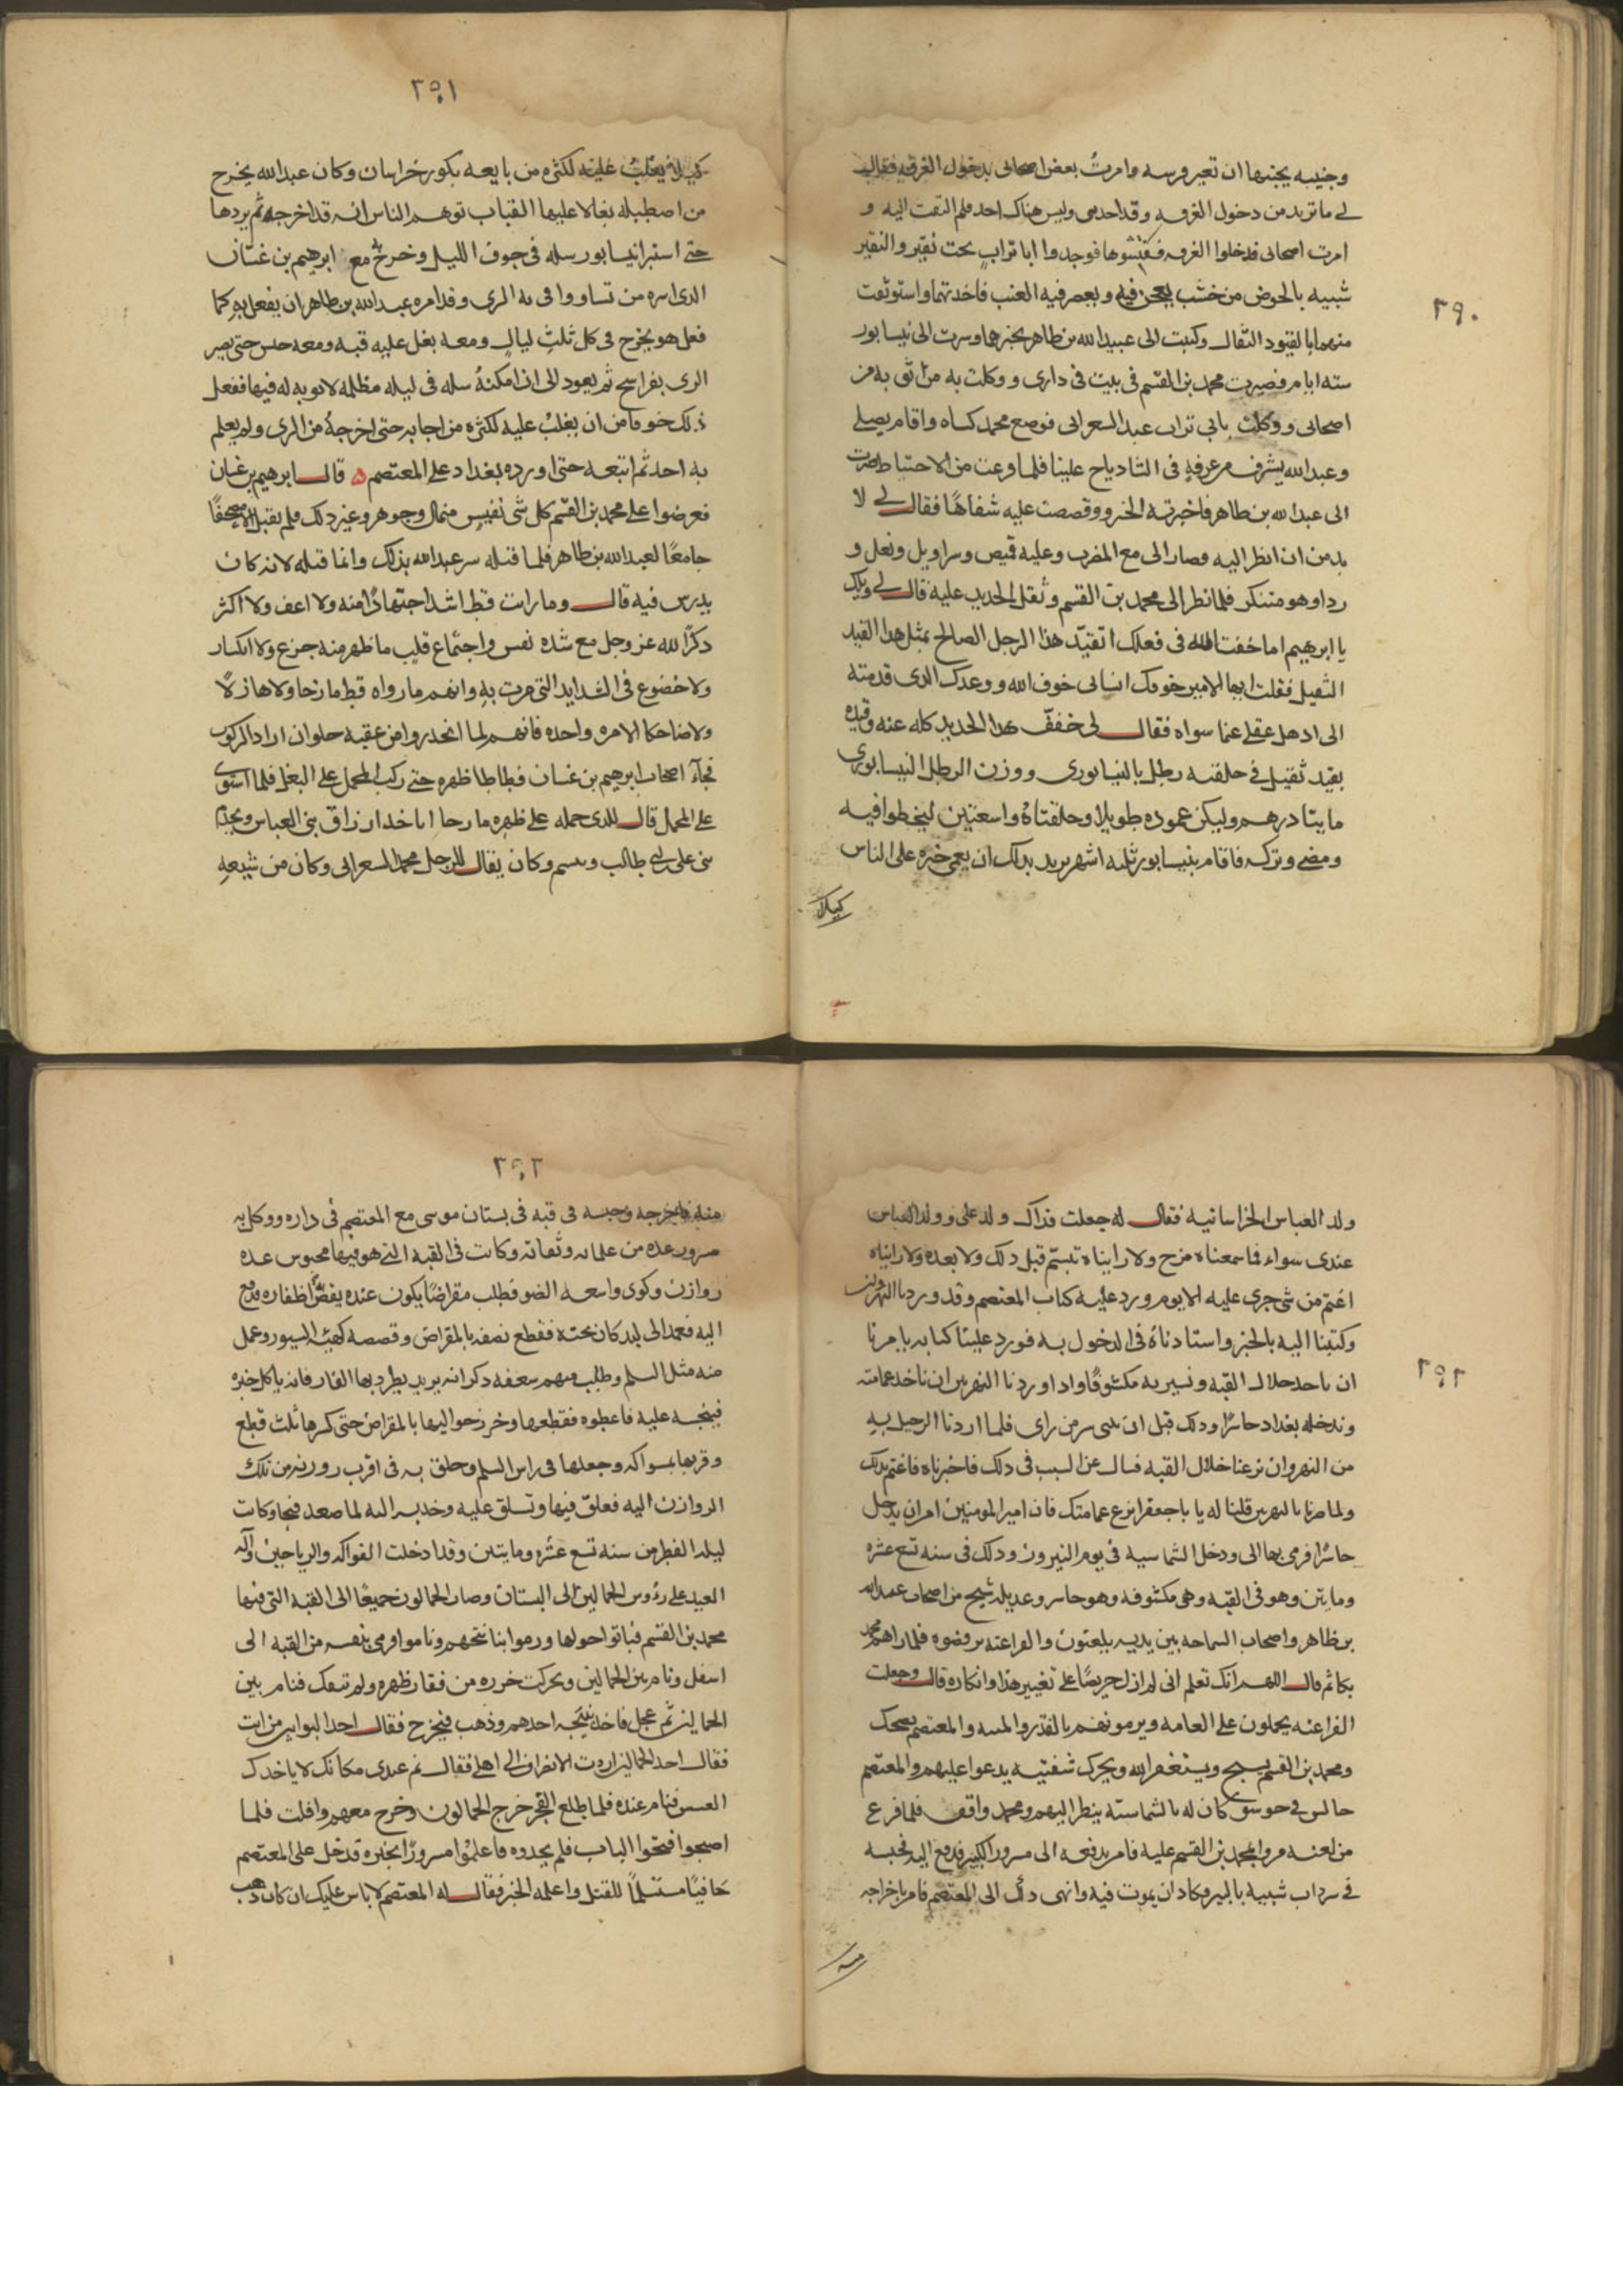 ٢٩٠
وجنيبه يجنبها ان تعير فرسه وامرتُ بعض اصحابى بدخول الغرفه فقال
لى ما تريد من دخول الغرفه وليس هناك احد فلم التفت اليه و
امرت اصحابى فدخلوا الغرفه ففتشوها فوجدوا ابا تراب تحت نقير والنقير
شبيه بالحوض من خشب يعجن فيه ويعصر فيه العنب فاخذتهما واستوثقت
منهما بالقيود الثقال وكتبت الى عبدالله بن طاهر بخبرهما وسرت الى نيسابور
سته ايام فصيرت محمد بن القسم فى بيت فى دارى ووكلت به من اثق به من
اصحابى ووكلت بابى تراب عبد الشعرانى فوضع محمد كساه واقام يصلى
وعبدالله يشرف من غرفه فى الشادياخ علينا فلما فرغت من الاحتياط صرت
الى عبدالله بن طاهر فاخبرته الخبر وقصصت عليه شفاهًا فقال لى لا
بد من ان انظر اليه فصار الى مع المغرب وعليه قميص وسراويل ونعل و
رداء وهو متنكر فلما نظر الى محمد بن القسم وثقل الحديد عليه قال لى ويلك
يا ابرهيم اما خفت الله فى فعلك اتقيد هذا الرجل الصالح بمثل هذا القيد
الثقيل فقلت ايها الامير خوفك انسانى خوف الله ووعدك الذى قدمته
الى اذهل عقلى عما سواه فقال لى خفف هذا الحديد كله عنه وقيده
بقيد ثقيل فى حلقته رطل بالنيسابورى ووزن الرطل النيسابورى
مايتا درهم وليكن عموده طويلا وحلقتاه واسعتين ليخطوا فيه
ومضى وتركه فاقام بنيسابور ثلثه اشهر يريد بذلك ان يعمى خبره على الناس
كيلا
٢٩١
كيلا يغلب عليه لكثره من بايعه بكور خراسان وكان عبدالله يخرج
من اصطبله بغالا عليها القباب توهم الناس انه قد اخرجه ثم يردها
حتى استبرا نيسابور سله فى جوف الليل وخرج به مع ابرهيم بن غسان
الذى اسره من نسا ووافى به الرى وقد امره عبدالله بن طاهر ان يفعل به كما
فعل هو يخرج فى كل ثلث ليال ومعه بغل عليه قبه ومعه جيش حتى يصير
الرى بفراسخ ثم يعود الى ان امكنه سله فى ليله مظلمه لا يوبه له فيها ففعل
ذلك خوفا من ان يغلب عليه لكثره من اجابه حتى اخرجه من الرى ولم يعلم
به احد ثم اتبعه حتى اورده بغداد على المعتصم ٥ قال ابرهيم بن غسان
فعرضوا على محمد بن القسم كل شى نفيس من مال وجوهر وغير ذلك فلم يقبل الا مصحفًا
جامعًا لعبدالله بن طاهر فلما قبله سر عبدالله بذلك وانما قبله لانه كان
يدرس فيه قال وما رايت قط اشد اجتهادًا منه ولا اعف ولا اكثر
ذكرًا لله عز وجل مع شده نفس واجتماع قلب ما ظهر منه جزع ولا انكسار
ولا خضوع فى الشدايد التى مرت به وانهم ما رواه قط مازحا ولا هازلًا
ولا ضاحكا الا مره واحده فانهم لما انحدروا من عقبه حلوان اراد الركوب
فجآء اصحاب ابرهيم بن غسان فطاطا ظهره حتى ركب المحمل على البغل فلما استوى
على المحمل قال للذى حمله على ظهره مازحا اتاخذ ارزاق بنى العباس وتخدم
بنى على بن ابى طالب وتبسم وكان يقال للرجل محمد الشعرانى وكان من شيعه
٢٩٢
ولد العباس الخراسانيه فقال له جعلت فداك ولد على وولد العباس
عندى سواء فما سمعناه مزح ولا رايناه تبسّم قبل ذلك ولا بعده ولا رايناه
اغتم من شى جرى عليه الا يوم ورد عليه كتاب المعتصم وقد وردنا النهروان
وكتبنا اليه بالخبر واستاذناه فى الدخول به فورد علينا كتابه يامرنا
ان ناخذ جلال القبه ونسير به مكشوفًا واذا وردنا النهرين ان ناخذ عمامته
وندخله بغداد حاسرًا وذلك قبل ان يبنى سر من راى فلما اردنا الرحيل به
من النهروان نزعنا جلال القبه فسال عن السبب فى ذلك فاخبرناه فاغتم بذلك
ولما صرنا بالنهرين قلنا له يا باجعفر انزع عمامتك فان امير المومنين امر ان يدخل
حاسرًا فرمى بها الى ودخل الشماسيه فى يوم النيروز وذلك فى سنه تسع عشره
ومايتين وهو فى القبه وهى مكشوفه وهو حاسر وعديله شيخ من اصحاب عبدالله
بن طاهر واصحاب السماجه بين يديه يلعبون والفراعنه يرقصون فلما راهم محمد
بكا ثم قال اللهم انك تعلم انى لم ازل حريصًا على تغيير هذا وانكاره قال وجعلت
الفراعنه يحملون على العامه ويرمونهم بالقذر والميته والمعتصم يضحك
ومحمد بن القسم يسبح ويستغفر الله ويحرك شفتيه يدعوا عليهم والمعتصم
جالس فى جوسق كان له بالشماسيه ينظر اليهم ومحمد واقف فلما فرغ
من لعبه مروا بمحمد بن القسم عليه فامر بدفعه الى مسرور الكبير فدفع اليه فحبسه
فى سرداب شبيه بالبير فكاد ان يموت فيه وانهى ذلك الى المعتصم فامر باخراجه
منه
٢٩٣
منه فاخرجه وحبسه فى قبه فى بستان موسى مع المعتصم فى داره ووكل به
مسرور عده من غلمانه وثقاته وكانت فى القبه التى هو فيها محبوس عده
روازن وكوى واسعه الضو فطلب مقراضًا يكون عنده يقص به اظفاره فدفع
اليه فعمد الى لبد كان تحته فقطع نصفه بالمقراض وقصصه كهيئه السيور وعمل
منه مثل السلم وطلب منهم سعفه ذكر انه يريد يطرد بها الفار فانه ياكل خبزه
فينجسه عليه فاعطوه فقطعها وخرز حواليها بالمقراض حتى كسرها ثلث قطع
وقرنها بمسواكه وجعلها فى راس السلم وحلق به فى اقرب روزنه من تلك
الروازن اليه فعلق فيها وتسلق عليه وجذبه اليه لما صعد فنجا وكانت
ليله الفطر من سنه تسع عشره ومايتين وقد ادخلت الفواكه والرياحين وآله
العيد على رءوس الحمالين الى البستان وصار الحمالون جميعًا الى القبه التى فيها
محمد بن القسم فباتوا حولها ورموا بنا ناموا ورمى بنفسه من القبه الى
اسفل ونام بين الحمالين وتحركت خرزه من فقار ظهره ولم تنفك فنام بين
الحمالين ثم عجل فاخذ احدهم وذهب ليخرج فقال احد البوابين من انت
فقال احد الحمالين اردت الانصراف الى اهلى فقال نم عندى مكانك لا ياخذك
العسس فنام عنده فلما طلع الفجر خرج الحمالون وخرج معهم وافلت فلما
اصبحوا فتحوا الباب فلم يجدوه فاعلموا مسرورًا بخبره فدخل على المعتصم
حافيًا مستسلمًا للقتل واعلمه الخبر فقال له المعتصم لا باس عليك ان كان ذهب